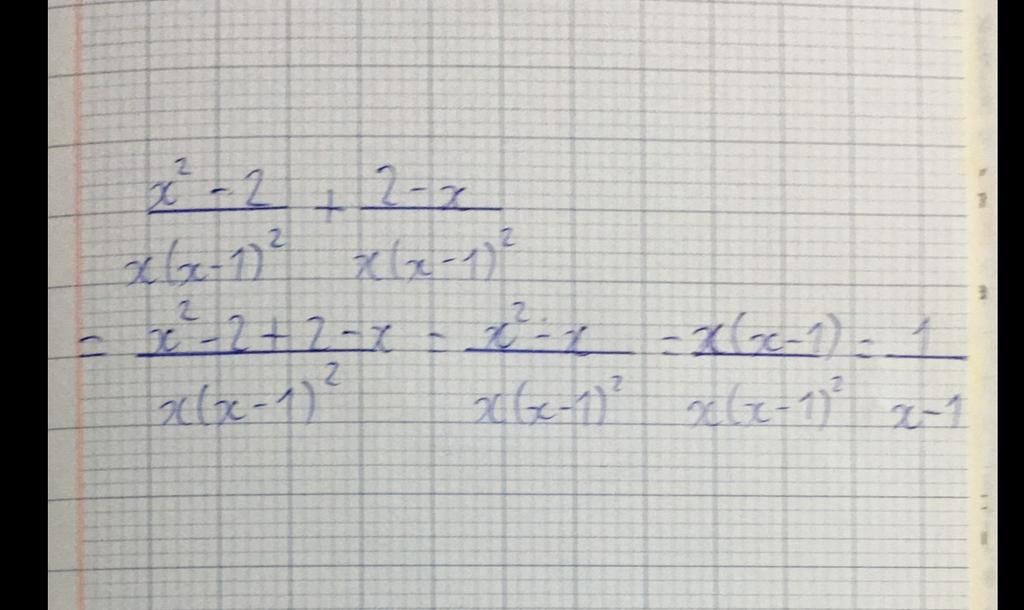 x² - 2 / x(x-1)² + 2 - x / x(x-1)²
= x² - 2 + 2 - x / x(x-1)² = x² - x / x(x-1)² = x(x-1) / x(x-1)² = 1 / x-1